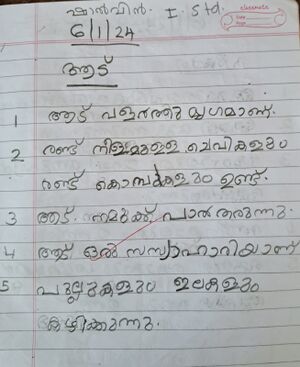 ഷാൽവിൻ. I. Std.
classmate
Date
Page
6/1/24
ആട്
1 ആട് വളർത്തു മൃഗമാണ്.
2 രണ്ട് നീളമുള്ള ചെവികളും
രണ്ട് കൊമ്പുകളും ഉണ്ട്.
3 ആട്. നമുക്ക് പാൽ തരുന്നു.
4 ആട് ഒരു സസ്യാഹാരിയാണ്
5 പുല്ലുകളും ഇലകളും
കഴിക്കുന്നു.